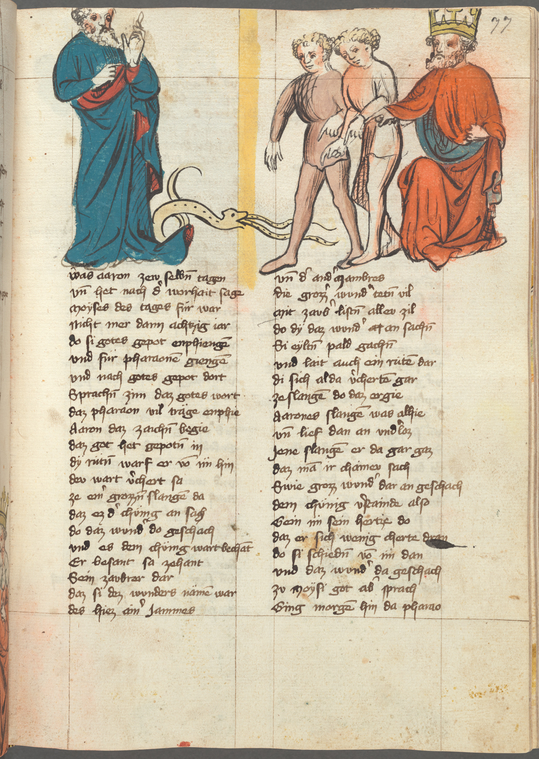 77
was aaron zew selbn tagen
vn̄ het nach d' worhait sage
Moyses des tages für war
nicht mer dann achtzig iar
do si gotes gepot enphiengen
vnd für pharaonē giengen
vnd nach gotes gepot dort
Sprachn̄ zim daz gotes wort
daz pharaon vil träge enphie
Aaron daz zaichn̄ begie
daz got het gepotn̄ in
dy rutn̄ warf er vō im hin
dew wart v'chert sa
ze ein' grozzn̄ slangē da
daz ez d' chünig an sach
do daz wund' do geschach
vnd es dem chünig wart bechāt
Er besant sa zehant
Sein zaubrer dar
daz si dez wunders nāme war
des hiez ain' Jammes
vn̄ d' and Mambres
die grozz wund' tetn̄ vil
mit zaubs listn̄ allev zil
do dy daz wund' an sachn̄
Si eyltn̄ pald gachn̄
vnd lait auch ein rüten dar
di sich alda v'cherte gar
ze slangē do daz ergie
Aarones slangē was alhie
vn̄ lief dan an vnd
Jene slangē er da gar gaz
daz mā ir chainev sach
Swie grozz wund' dar an geschach
dem chünig v'stainde also
Sein in sein hertze do
daz er sich wenig cherte dran
do si schiedn̄ vō im dan
vnd daz wund' da geschach
zv Moysi got ab' sprach
Ging morgē hin da pharao